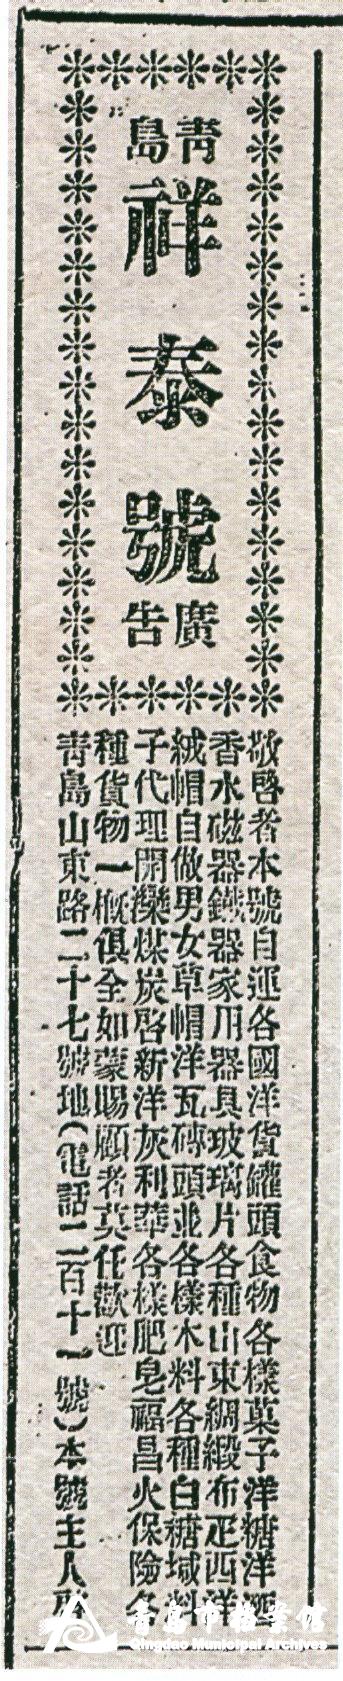 青島
祥泰號
廣告
敬啓者本號自運各國洋貨罐頭食物各樣菓子洋糖洋酒
香水磁器鐵器家用器具玻璃片各種山東綢緞布疋西洋
絨帽自做男女草帽洋瓦磚頭並各樣木料各種白糖堿料
子代理開灤煤炭啓新洋灰利華各樣肥皂福昌火保險各
種貨物一概俱全如蒙賜顧者莫任歡迎
青島山東路二十七號地(電話二百十一號)本號主人啓
青島市檔案館
Qingdao Municipal Archives